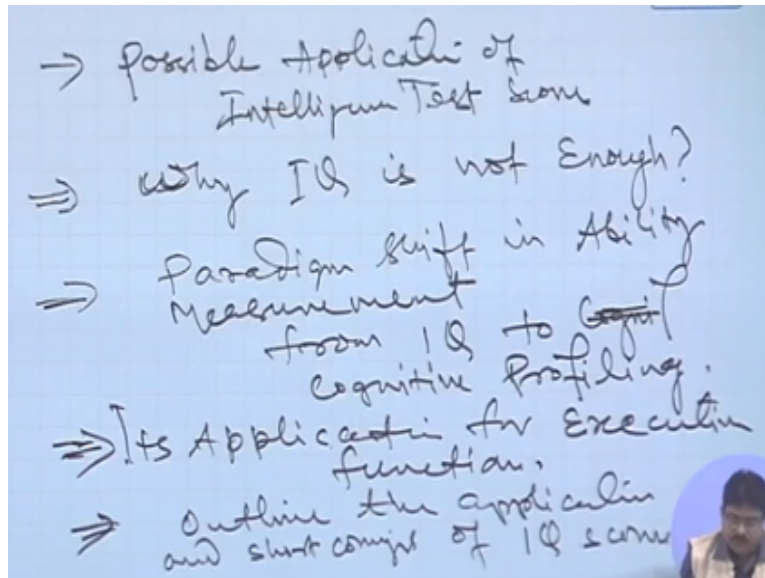 → Possible Application of
Intelligence Test Scores
⇒ Why IQ is not Enough?
⇒ Paradigm shift in Ability
Measurement
from IQ to
Cognitive Profiling.
⇒ Its Application for Executive
function.
⇒ Outline the application
and short comings of IQ scores